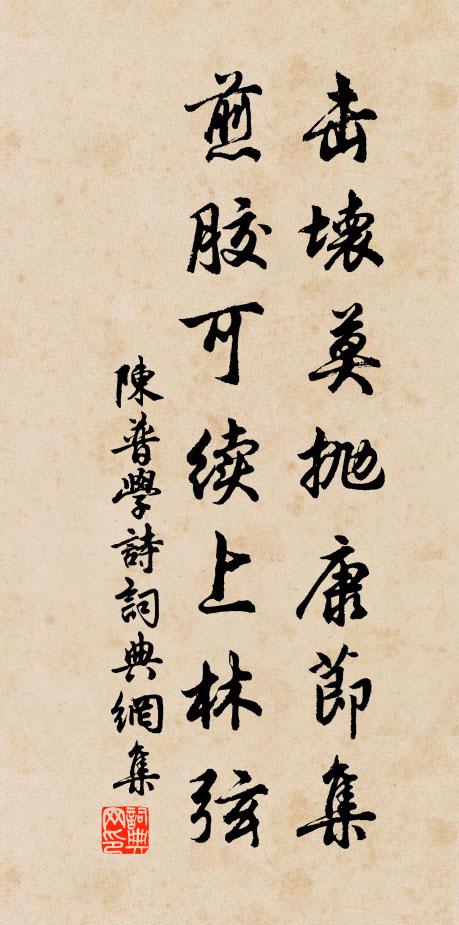 击壞莫抛康節集
煎胶可續上林弦
陳普學詩詞典網集
詞典網印